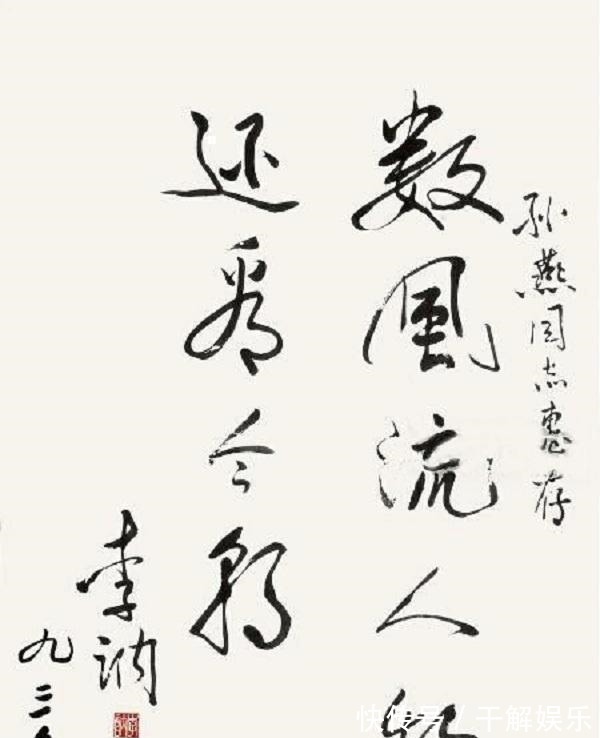 孙燕同志惠存
数风流人物
还看今朝
李讷
九二年
快传号/干解娱乐